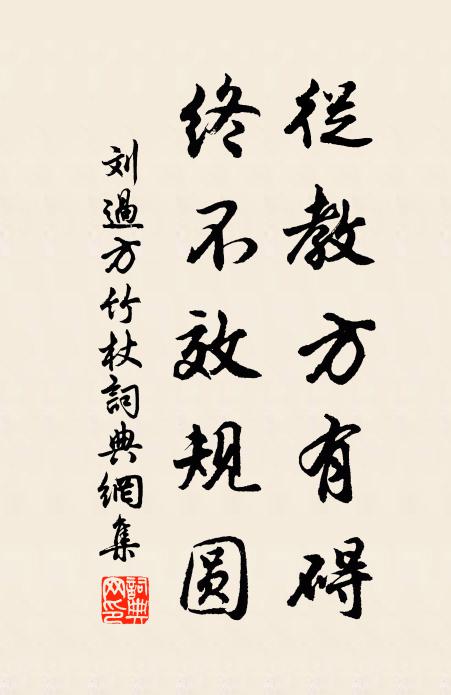 從教方有碍
终不效规圆
刘過方竹杖詞典網集
詞典网印